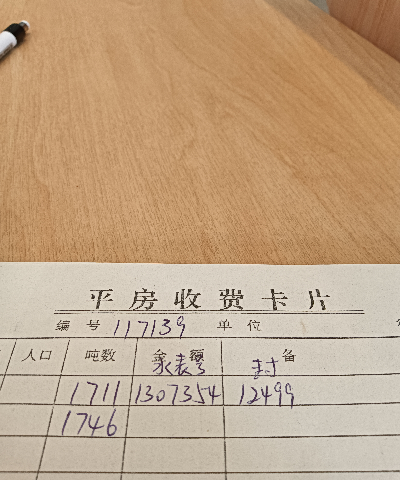 平房收费卡片
编号 117139 单位
人口 吨数 金额 水表号 封 备
1711 1307354 12499
1746